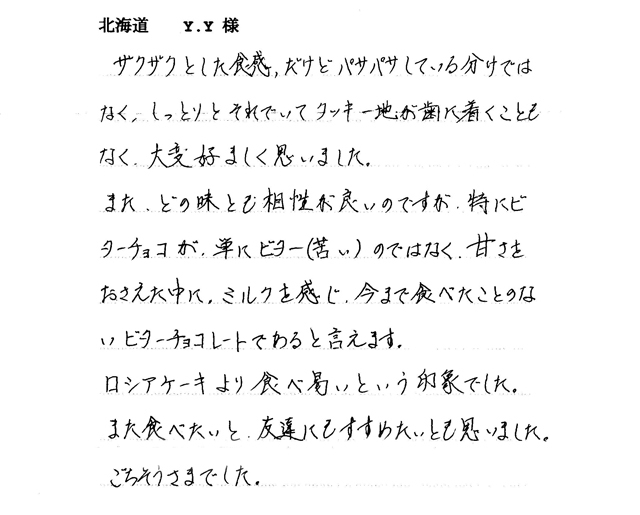 北海道　Y.Y 様
ザクザクとした食感，だけどパサパサしている分けでは
なく，しっとりとそれでいてクッキー地が歯に着くことも
なく、大変好ましく思いました。
また、どの味とも相性が良いのですが、特にビ
ターチョコが、単にビター(苦い)のではなく、甘さを
おさえた中に、ミルクを感じ、今まで食べたことのな
いビターチョコレートであると言えます。
ロシアケーキより食べ易いという印象でした。
また食べたいと、友達にもすすめたいとも思いました。
ごちそうさまでした。